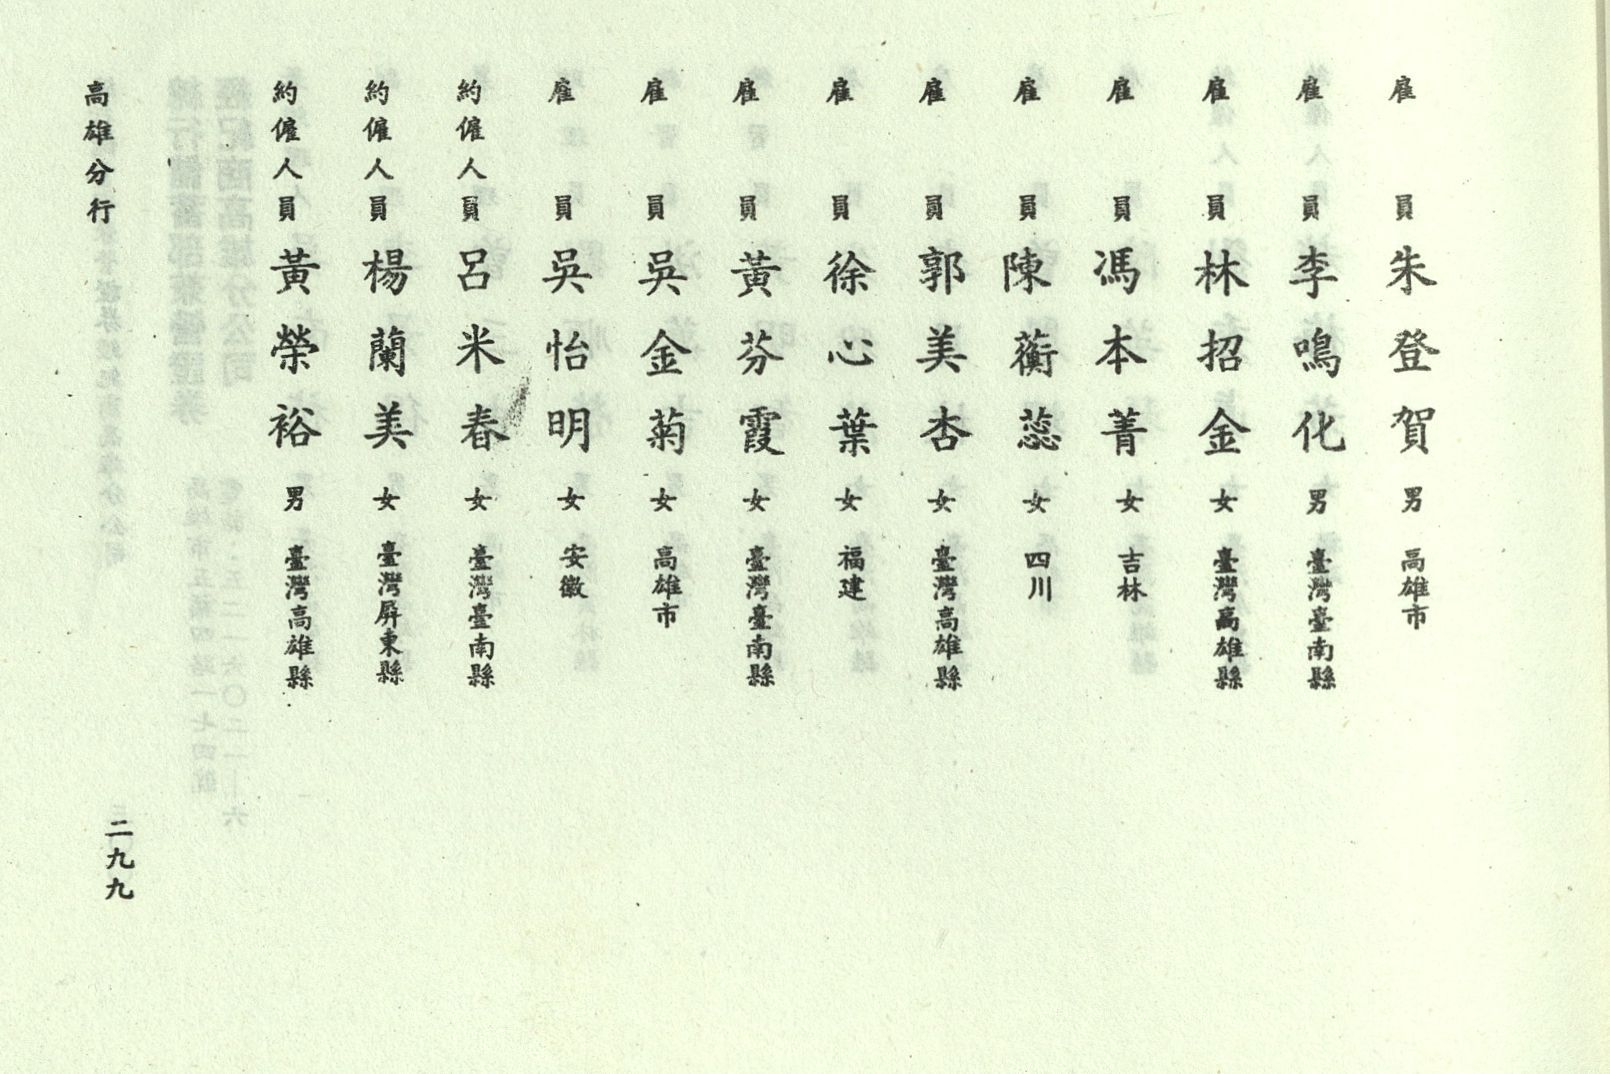 雇員朱登賀男高雄市
雇員李鳴化男臺灣臺南縣
雇員林招金女臺灣高雄縣
雇員馮本菁女吉林
雇員陳蘅蕊女四川
雇員郭美杏女臺灣高雄縣
雇員徐心葉女福建
雇員黃芬霞女臺灣臺南縣
雇員吳金菊女高雄市
雇員吳怡明女安徽
約僱人員呂米春女臺灣臺南縣
約僱人員楊蘭美女臺灣屏東縣
約僱人員黃榮裕男臺灣高雄縣
高雄分行
二九九